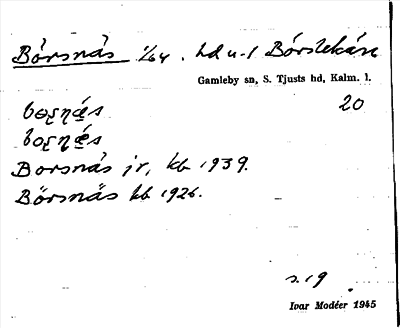 Börsnäs 1/64. hd u. l Börstekärr
Gamleby sn, S. Tjusts hd, Kalm. l.
20
Borsnäs jr, kb 1939.
Börsnäs kb 1926.
s. 19
Ivar Modéer 1945